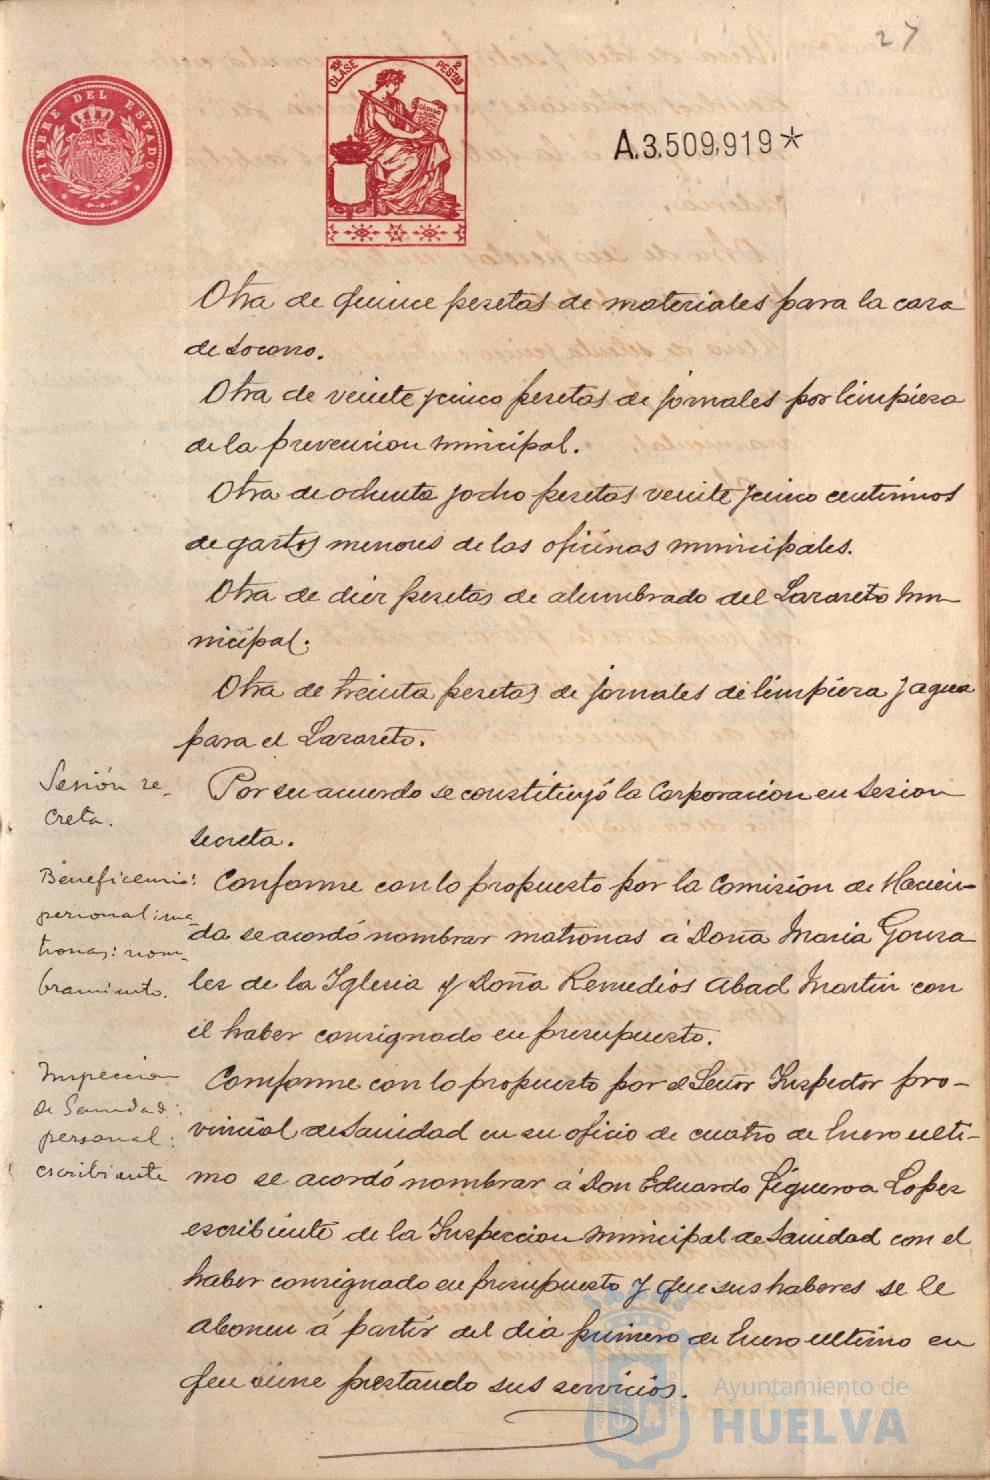 27
TIMBRE DEL ESTADO
10ª CLASE
2 PESETAS
A.3.509,919*
Otra de quince pesetas de materiales para la casa
de socorro.
Otra de veinte y cinco pesetas de jornales por limpieza
de la prevencion municipal.
Otra de ochenta y ocho pesetas veinte y cinco centimos
de gastos menores de las oficinas municipales.
Otra de diez pesetas de alumbrado del Lazareto mu-
nicipal.
Otra de treinta pesetas de jornales de limpieza y agua
para el Lazareto.
Sesión se-
creta.
Por su acuerdo se constituyó la Corporacion en sesion
secreta.
Beneficencia:
personal: ma-
tronas: nom-
bramiento.
Conforme con lo propuesto por la Comision de Hacien-
da se acordó nombrar matronas á Doña Maria Gonza
lez de la Iglesia y Doña Remedios Abad Martin con
el haber consignado en presupuesto.
Inspeccion
de Sanidad:
personal:
escribiente
Conforme con lo propuesto por el Señor Inspector pro-
vincial de Sanidad en su oficio de cuatro de Enero ulti-
mo se acordó nombrar á Don Eduardo Figueroa Lopez
escribiente de la Inspeccion municipal de Sanidad con el
haber consignado en presupuesto y que sus haberes se le
abonen á partir del dia primero de Enero ultimo en
que viene prestando sus servicios.
Ayuntamiento de
HUELVA